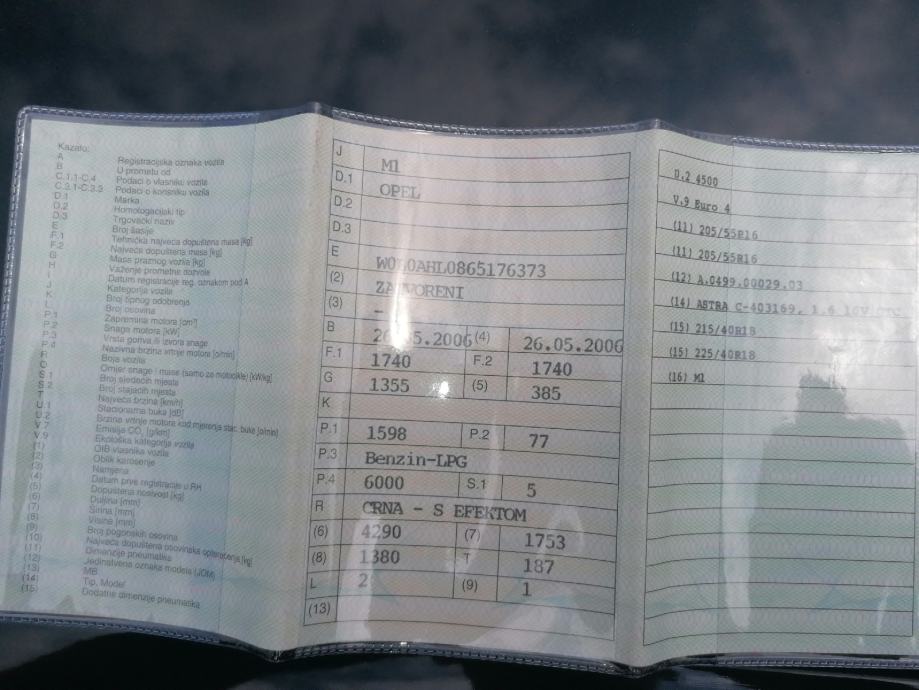 Kazalo:
A Registracijska oznaka vozila
B U prometu od
C.1.1-C.4 Podaci o vlasniku vozila
C.3.1-C.3.3 Podaci o korisniku vozila
D.1 Marka
D.2 Homologacijski tip
D.3 Trgovački naziv
E Broj šasije
F.1 Tehnička najveća dopuštena masa [kg]
F.2 Najveća dopuštena masa [kg]
G Masa praznog vozila [kg]
H Važenje prometne dozvole
I Datum registracije reg. oznakom pod A
J Kategorija vozila
K Broj tipnog odobrenja
L Broj osovina
P.1 Zapremina motora [cm³]
P.2 Snaga motora [kW]
P.3 Vrsta goriva ili izvora snage
P.4 Nazivna brzina vrtnje motora [o/min]
R Boja vozila
Q Omjer snage i mase (samo za motocikle) [kW/kg]
S.1 Broj sjedećih mjesta
S.2 Broj stajaćih mjesta
T Najveća brzina [km/h]
U.1 Stacionarna buka [dB]
U.2 Brzina vrtnje motora kod mjerenja stac. buke [o/min]
V.7 Emisija CO₂ [g/km]
V.9 Ekološka kategorija vozila
(1) OIB vlasnika vozila
(2) Oblik karoserije
(3) Namjena
(4) Datum prve registracije u RH
(5) Dopuštena nosivost [kg]
(6) Duljina [mm]
(7) Širina [mm]
(8) Visina [mm]
(9) Broj pogonskih osovina
(10) Najveća dopuštena osovinska opterećenja [kg]
(11) Dimenzije pneumatika
(12) Jedinstvena oznaka modela (JOM)
(13) MB
(14) Tip, Model
(15) Dodatne dimenzije pneumatika
J M1
D.1 OPEL
D.2
D.3
E W0L0AHL0865176373
(2) ZATVORENI
(3) -
B 26.05.2006 (4) 26.05.2006
F.1 1740 F.2 1740
G 1355 (5) 385
K
P.1 1598 P.2 77
P.3 Benzin-LPG
P.4 6000 S.1 5
R CRNA - S EFEKTOM
(6) 4290 (7) 1753
(8) 1380 T 187
L 2 (9) 1
(13)
D.2 4500
V.9 Euro 4
(11) 205/55R16
(11) 205/55R16
(12) A.0499.00029.03
(14) ASTRA C-403169, 1.6 16V
(15) 215/40R18
(15) 225/40R18
(16) M1